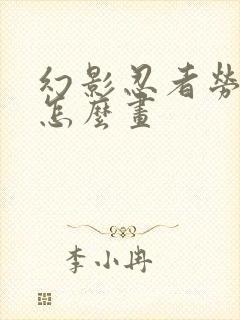 幻影忍者勞
怎麼畫
李小冉